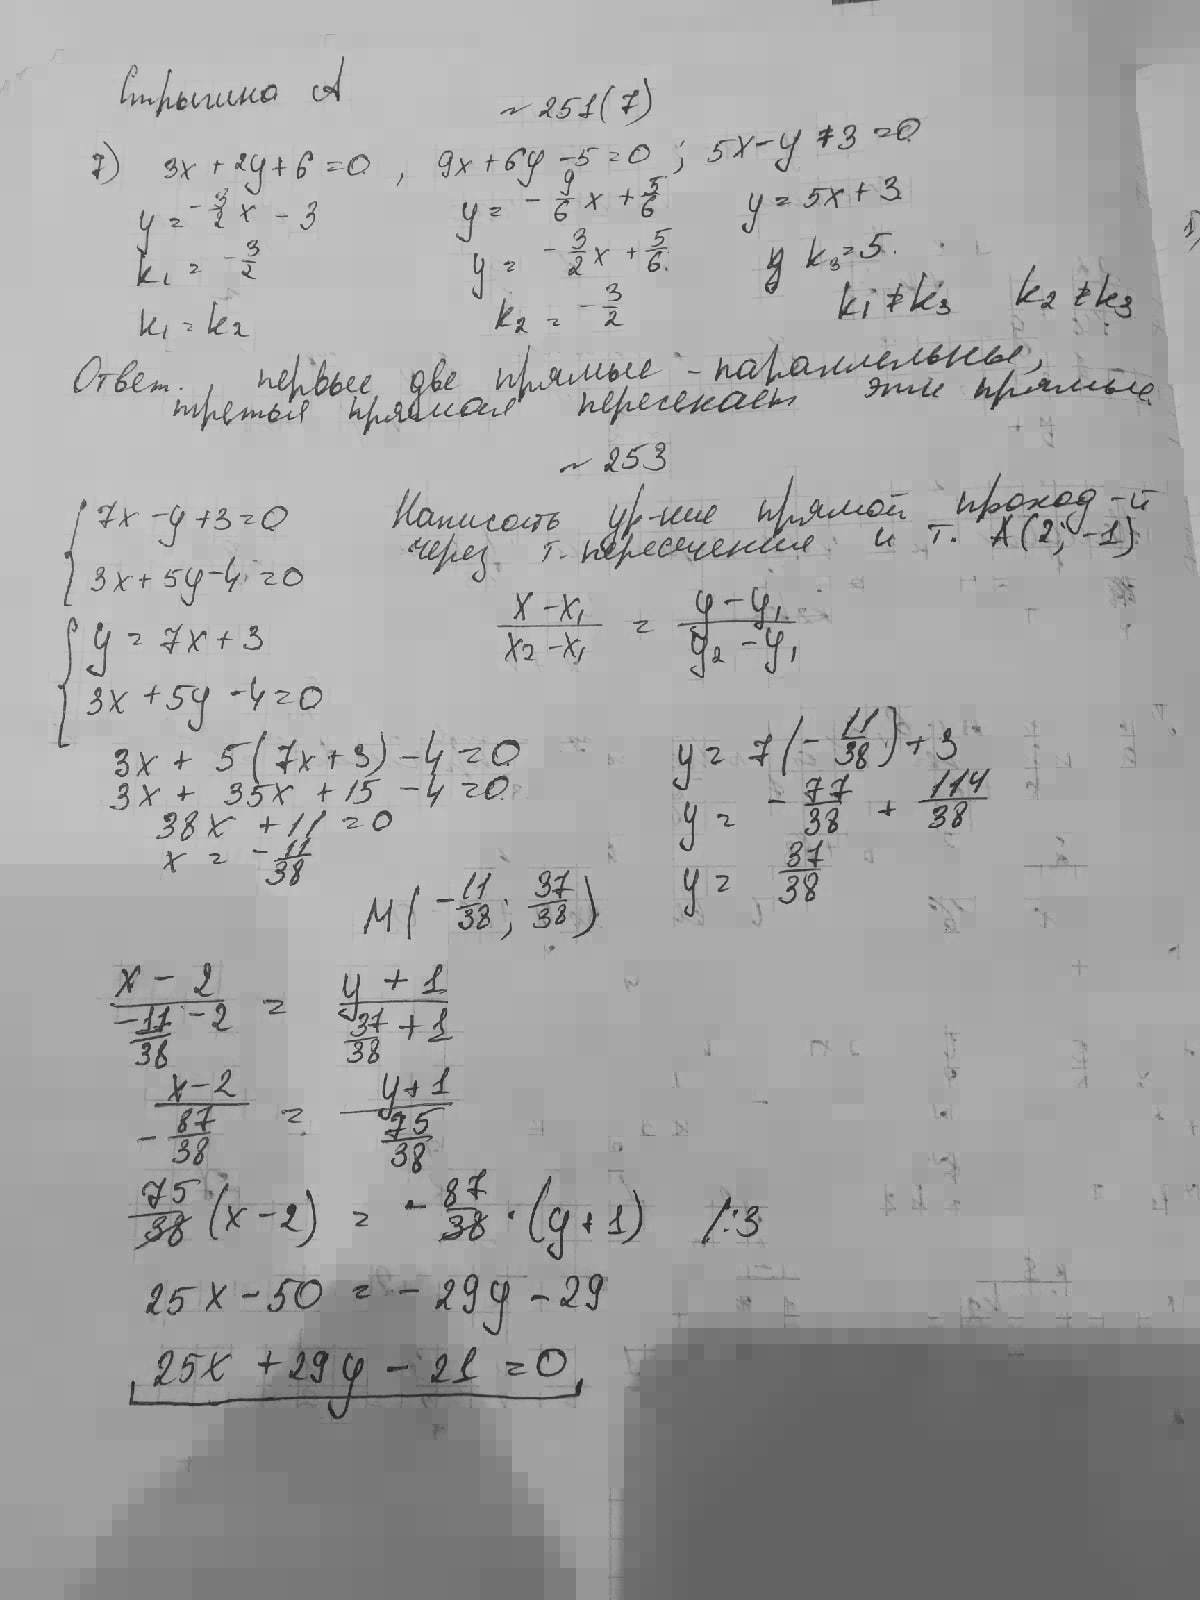 Стрыгина А
~ 251(7)
7) 3x + 2y + 6 = 0 , 9x + 6y - 5 = 0 ; 5x - y + 3 = 0
y = -3/2 x - 3   y = -9/6 x + 5/6   y = 5x + 3
k1 = -3/2   y = -3/2 x + 5/6.   k3 = 5.
k1 = k2   k2 = -3/2   k1 ≠ k3   k2 ≠ k3
Ответ. первые две прямые - параллельны,
третья прямая пересекает эти прямые.
~ 253
7x - y + 3 = 0   Написать ур-ние прямой проход-й
3x + 5y - 4 = 0   через т. пересечения и т. A(2; -1)
y = 7x + 3   (x - x1)/(x2 - x1) = (y - y1)/(y2 - y1)
3x + 5y - 4 = 0
3x + 5(7x + 3) - 4 = 0   y = 7(-11/38) + 3
3x + 35x + 15 - 4 = 0   y = -77/38 + 114/38
38x + 11 = 0
x = -11/38   y = 37/38
M(-11/38; 37/38)
(x - 2)/(-11/38 - 2) = (y + 1)/(37/38 + 1)
(x - 2)/(-87/38) = (y + 1)/(75/38)
75/38 (x - 2) = -87/38 · (y + 1)   /:3
25x - 50 = -29y - 29
25x + 29y - 21 = 0